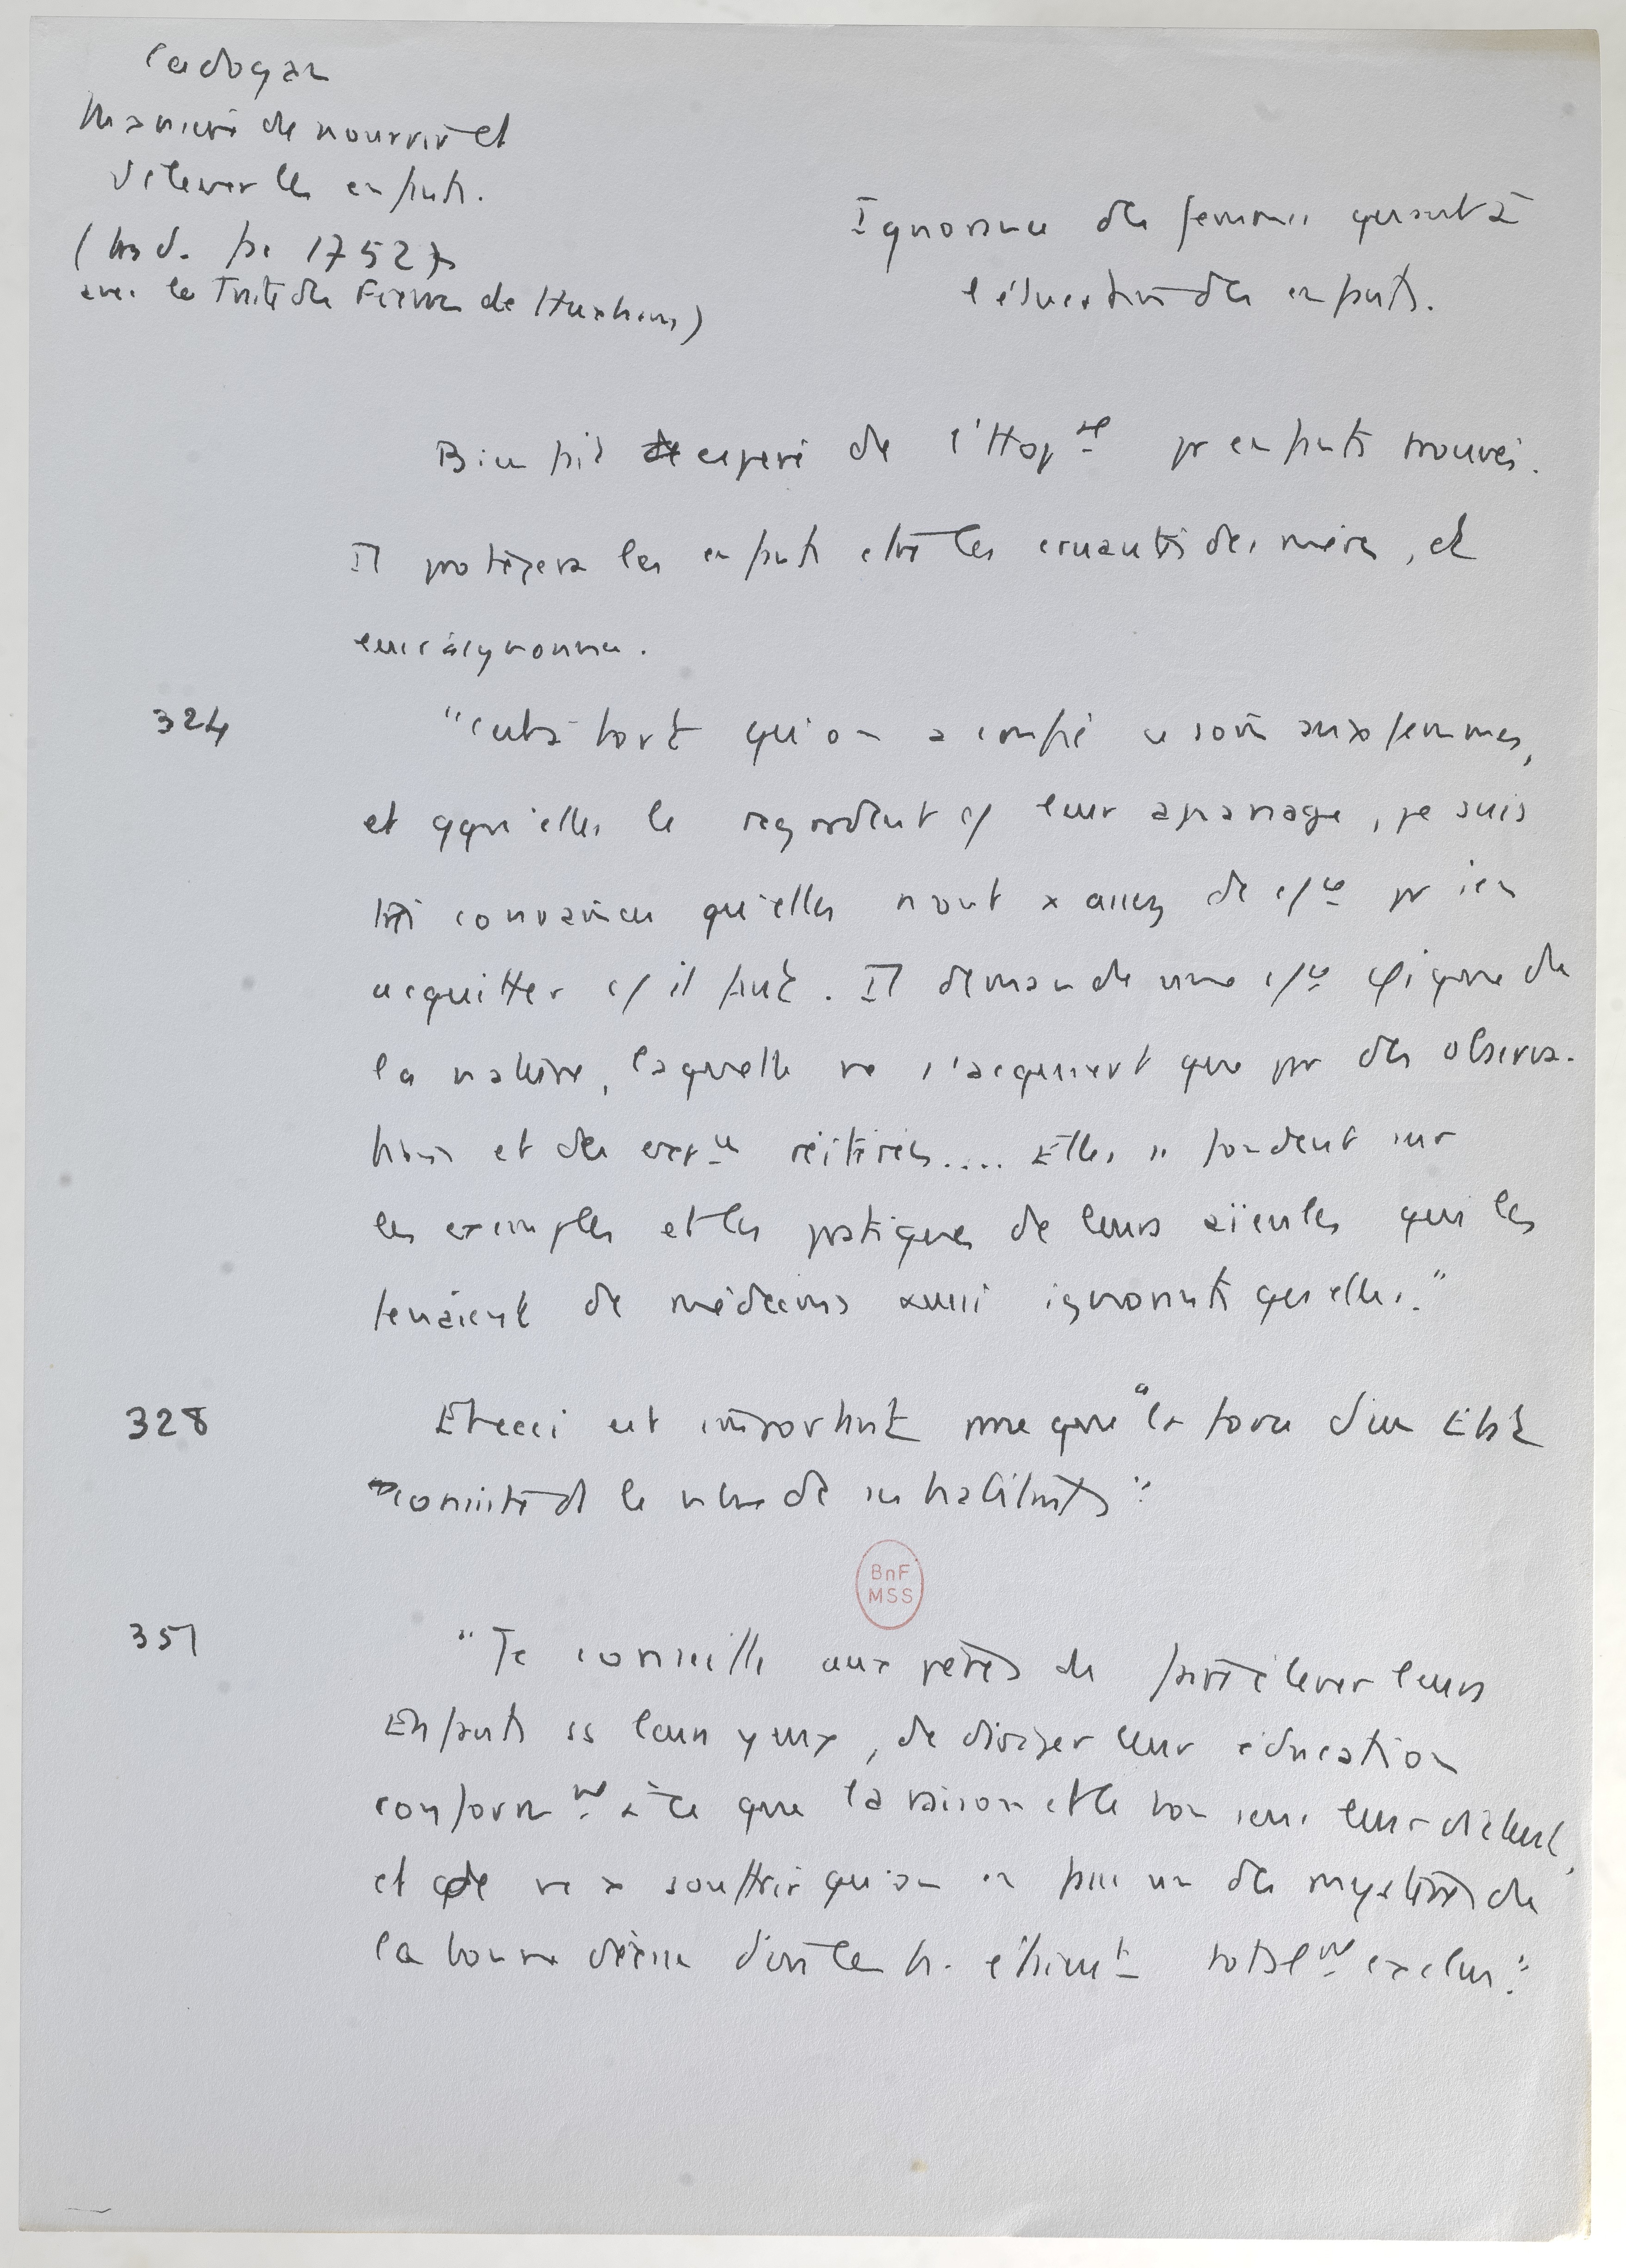 Cadogan
Manière de nourrir et
d'élever les enfants.
(trad. fr. 1752)
avec le Traité des Fièvres de Huxham)
Ignorance des femmes quant à
l'éducation des enfants.
Bien fait espéré de l'Hopal pr enfants trouvés.
Il protégera les enfants ctre les cruautés des mères, et
leur ignorance.
324
"C'est à tort qu'on a confié ce soin aux femmes,
et qqu'elles le regardent c/ leur apanage, je suis
très convaincu qu'elles n'ont x assez de c/ce pr s'en
acquitter c/ il faut. Il demande une c/ce φique de
la nature, laquelle ne s'acquiert que pr des observa-
tions et des expces réitérées.... Elles se fondent sur
les exemples et les pratiques de leurs aïeules qui les
tenaient de médecins aussi ignorants qu'elles."
328
Et ceci est important pce que "la force d'un Etat
consiste ds le nbre de ses habitants"
BnF
MSS
351
"Je conseille aux pères de faire élever leurs
Enfants ss leurs yeux, de diriger leur éducation
conformt à ce que la raison et le bon sens leur dictent,
et de ne x souffrir qu'on en fasse un des mystères de
la bonne déesse dont les h. étaient totalt exclus."